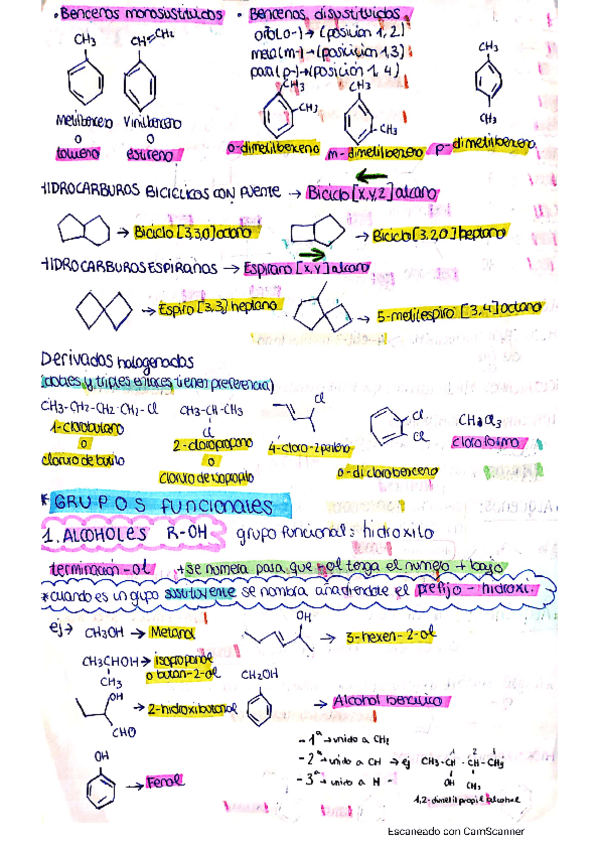 • Bencenos monosustituidos
• Bencenos disustituidos
orto(o-) → (posición 1,2)
meta(m-) → (posición 1,3)
para(p-) → (posición 1,4)
CH3
CH=CH2
CH3
CH3
CH3
CH3
CH3
CH3
Metilbenceno
o
tolueno
Vinilbenceno
o
estireno
o-dimetilbenceno
m-dimetilbenceno
p-dimetilbenceno
HIDROCARBUROS BICICLICOS CON PUENTE → Biciclo[x,y,z]alcano
→ Biciclo[3,3,0]octano
→ Biciclo[3.2.0]heptano
HIDROCARBUROS ESPIRANOS → Espirano[x,y]alcano
→ Espiro[3,3]heptano
→ 5-metilespiro [3,4]octano
Derivados halogenados
(dobles y triples enlaces tienen preferencia)
CH3-CH2-CH2-CH2-Cl
1-clorobutano
o
cloruro de butilo
CH3-CH-CH3
Cl
2-cloropropano
o
cloruro de isopropilo
Cl
4-cloro-2penteno
Cl
Cl
o-diclorobenceno
cloroformo
* GRUPOS funcionales
1. ALCOHOLES R-OH grupo funcional: hidroxilo
terminación -ol
+ se numera para que ol tenga el número + bajo
* cuando es un grupo sustituyente se nombra añadiendole el prefijo - hidroxi.
ej → CH3OH → Metanol
OH
→ 3-hexen-2-ol
CH3CHOH →
CH3
o butan-2-ol
OH
CHO
→ 2-hidroxibutanal
CH2OH
→ Alcohol bencilico
OH
→ Fenol
- 1ª → unido a CH2
- 2ª → unido a CH → ej CH3-CH-CH-CH3
OH CH3
- 3ª → unido a H -
1,2-dimetilpropil alcohol
Escaneado con CamScanner